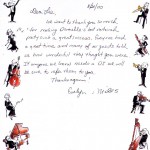 Dear Lisa, 8/20/03
We want to thank you so much
for making Danielle's bat mitzvah
party such a great success. Everyone had
a great time and many of our guests told
us how wonderful they thought you were.
If anyone we know needs a DJ we will
be sure to refer them to you.
Thanks again